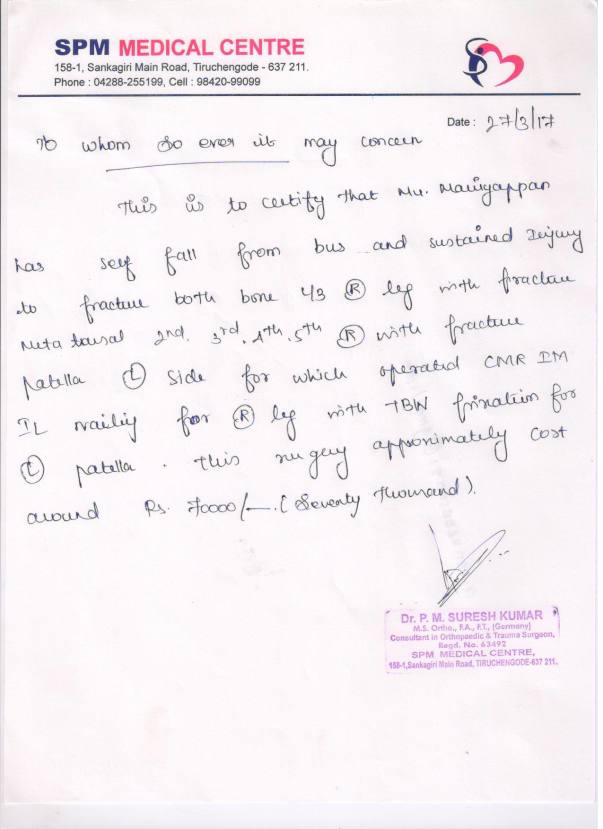 SPM MEDICAL CENTRE
158-1, Sankagiri Main Road, Tiruchengode - 637 211.
Phone : 04288-255199, Cell : 98420-99099
Date : 27/3/17
To whom so ever it may concern
This is to certify that Mr. Maniyappan
has self fall from bus and sustained Injury
to fracture both bone 1/3 Ⓡ leg with fracture
Meta tarsal 2nd. 3rd. 4th. 5th Ⓡ with fracture
patella Ⓛ side for which operated CMR IM
IL nailing for Ⓡ leg with TBW fixation for
Ⓛ patella. This surgery approximately cost
around Rs. 70000/-. (Seventy thousand).
Dr. P. M. SURESH KUMAR
M.S. Ortho., F.A., F.T., (Germany)
Consultant in Orthopaedic & Trauma Surgeon,
Regd. No. 63492
SPM MEDICAL CENTRE,
158-1,Sankagiri Main Road, TIRUCHENGODE-637 211.